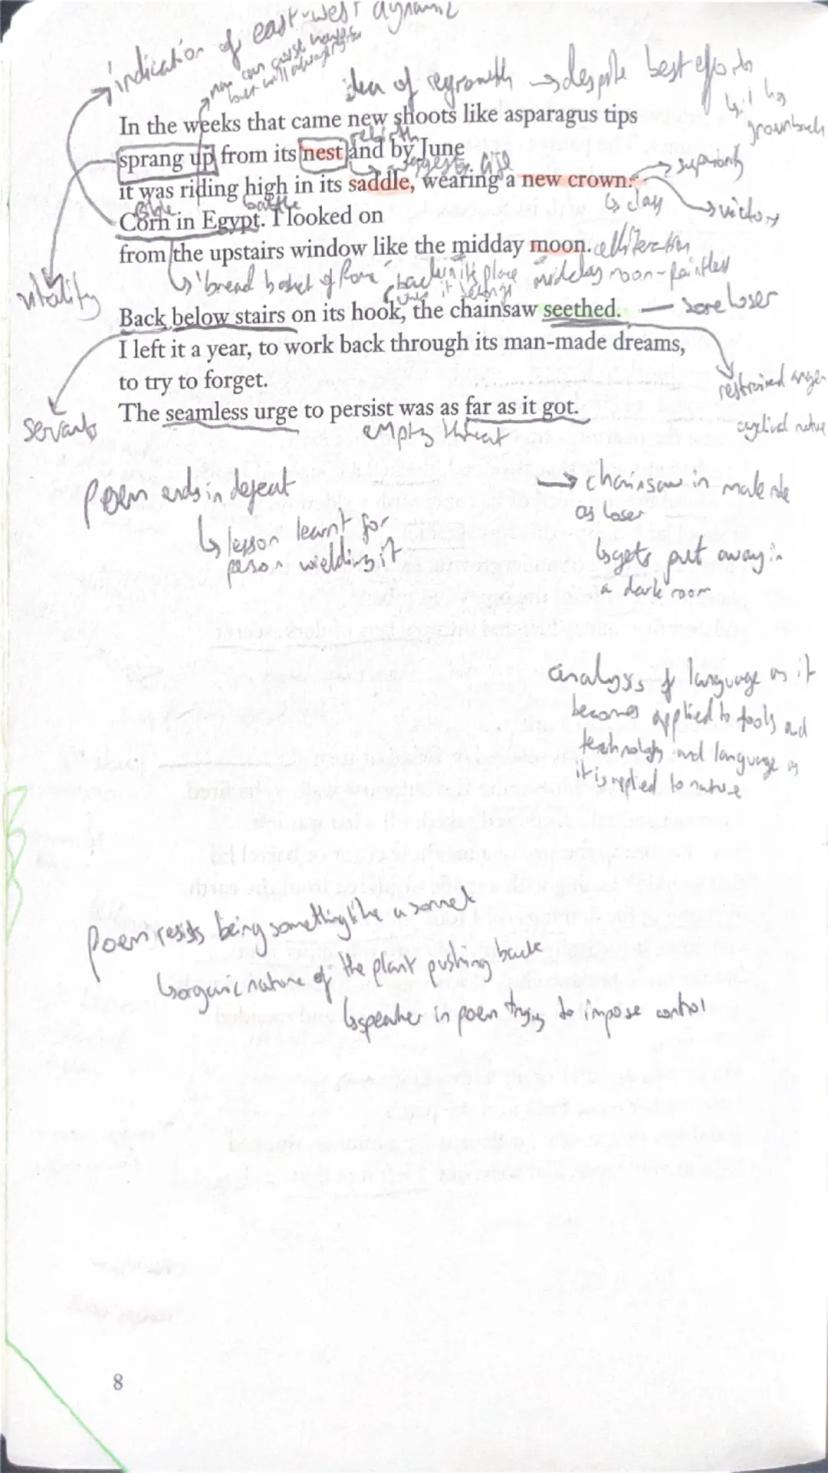 indication of east-west dynamic
man can cause havoc
but will always
idea of regrowth → despite best efforts
it has
grown back
In the weeks that came new shoots like asparagus tips
rebirth
sprang up from its nest and by June
suggests
superiority
it was riding high in its saddle, wearing a new crown.
Bible
battle
class
victory
Corn in Egypt. I looked on
from the upstairs window like the midday moon.
alliteration
'bread basket of Rome'
back in its place
where it belongs
midday moon - pointless
vitality
Back below stairs on its hook, the chainsaw seethed. — sore loser
I left it a year, to work back through its man-made dreams,
to try to forget.
restrained anger
The seamless urge to persist was as far as it got.
servants
empty threat
cyclical nature
poem ends in defeat
↳ lesson learnt for
person wielding it
→ chainsaw in male role
as loser
↳ gets put away in
a dark room
analysis of language as it
becomes applied to tools and
technology and language as
it is applied to nature
poem resists being something like a sonnet
↳ organic nature of the plant pushing back
↳ speaker in poem trying to impose control
8